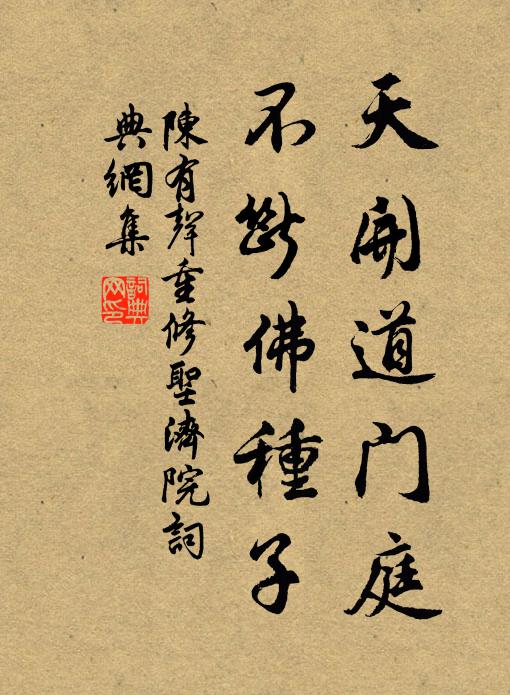 天開道門庭
不斷佛種子
陳有聲重修聖濟院詞
典網集
詞典
网印